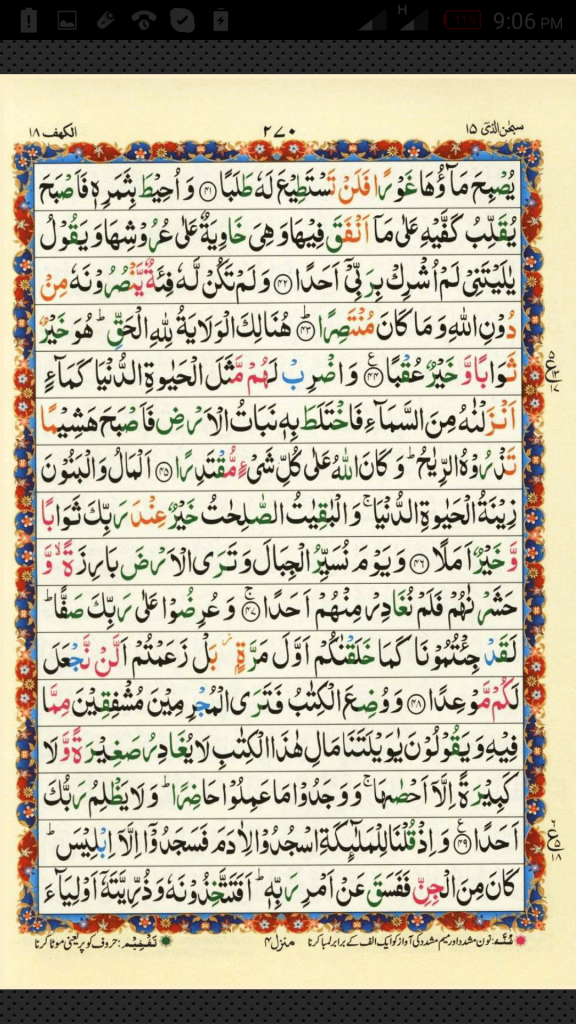 H 11% 9:06 PM
سبحٰن الذی ١٥ ٢٧٠ الكهف ١٨
يُصْبِحَ مَآؤُهَا غَوْرًا فَلَنْ تَسْتَطِيْعَ لَهٗ طَلَبًا ﴿۴۱﴾ وَ اُحِيْطَ بِثَمَرِهٖ فَاَصْبَحَ
يُقَلِّبُ كَفَّيْهِ عَلٰى مَاۤ اَنْفَقَ فِيْهَا وَ هِيَ خَاوِيَةٌ عَلٰى عُرُوْشِهَا وَ يَقُوْلُ
يٰلَيْتَنِيْ لَمْ اُشْرِكْ بِرَبِّيْۤ اَحَدًا ﴿۴۲﴾ وَ لَمْ تَكُنْ لَّهٗ فِئَةٌ يَّنْصُرُوْنَهٗ مِنْ
دُوْنِ اللّٰهِ وَ مَا كَانَ مُنْتَصِرًا ؕ﴿۴۳﴾ هُنَالِكَ الْوَلَايَةُ لِلّٰهِ الْحَقِّ ؕ هُوَ خَيْرٌ
ثَوَابًا وَّ خَيْرٌ عُقْبًا ﴿۴۴﴾ ع وَ اضْرِبْ لَهُمْ مَّثَلَ الْحَيٰوةِ الدُّنْيَا كَمَآءٍ
اَنْزَلْنٰهُ مِنَ السَّمَآءِ فَاخْتَلَطَ بِهٖ نَبَاتُ الْاَرْضِ فَاَصْبَحَ هَشِيْمًا
تَذْرُوْهُ الرِّيٰحُ ؕ وَ كَانَ اللّٰهُ عَلٰى كُلِّ شَيْءٍ مُّقْتَدِرًا ﴿۴۵﴾ اَلْمَالُ وَ الْبَنُوْنَ
زِيْنَةُ الْحَيٰوةِ الدُّنْيَا ۚ وَ الْبٰقِيٰتُ الصّٰلِحٰتُ خَيْرٌ عِنْدَ رَبِّكَ ثَوَابًا
وَّ خَيْرٌ اَمَلًا ﴿۴۶﴾ وَ يَوْمَ نُسَيِّرُ الْجِبَالَ وَ تَرَى الْاَرْضَ بَارِزَةً ۙ وَّ
حَشَرْنٰهُمْ فَلَمْ نُغَادِرْ مِنْهُمْ اَحَدًا ۚ﴿۴۷﴾ وَ عُرِضُوْا عَلٰى رَبِّكَ صَفًّا ؕ
لَقَدْ جِئْتُمُوْنَا كَمَا خَلَقْنٰكُمْ اَوَّلَ مَرَّةٍۭ ؗ بَلْ زَعَمْتُمْ اَلَّنْ نَّجْعَلَ
لَكُمْ مَّوْعِدًا ﴿۴۸﴾ وَ وُضِعَ الْكِتٰبُ فَتَرَى الْمُجْرِمِيْنَ مُشْفِقِيْنَ مِمَّا
فِيْهِ وَ يَقُوْلُوْنَ يٰوَيْلَتَنَا مَالِ هٰذَا الْكِتٰبِ لَا يُغَادِرُ صَغِيْرَةً وَّ لَا
كَبِيْرَةً اِلَّاۤ اَحْصٰىهَا ۚ وَ وَجَدُوْا مَا عَمِلُوْا حَاضِرًا ؕ وَ لَا يَظْلِمُ رَبُّكَ
اَحَدًا ﴿۴۹﴾ ع وَ اِذْ قُلْنَا لِلْمَلٰٓئِكَةِ اسْجُدُوْا لِاٰدَمَ فَسَجَدُوْۤا اِلَّاۤ اِبْلِيْسَ ؕ
كَانَ مِنَ الْجِنِّ فَفَسَقَ عَنْ اَمْرِ رَبِّهٖ ؕ اَفَتَتَّخِذُوْنَهٗ وَ ذُرِّيَّتَهٗۤ اَوْلِيَآءَ
غُنَّہ: نون مشدد اور میم مشدد کی آواز کو ایک الف کے برابر لمبا کرنا منزل ۴ تَفْخِیْم: حروف کو پُر یعنی موٹا کرنا